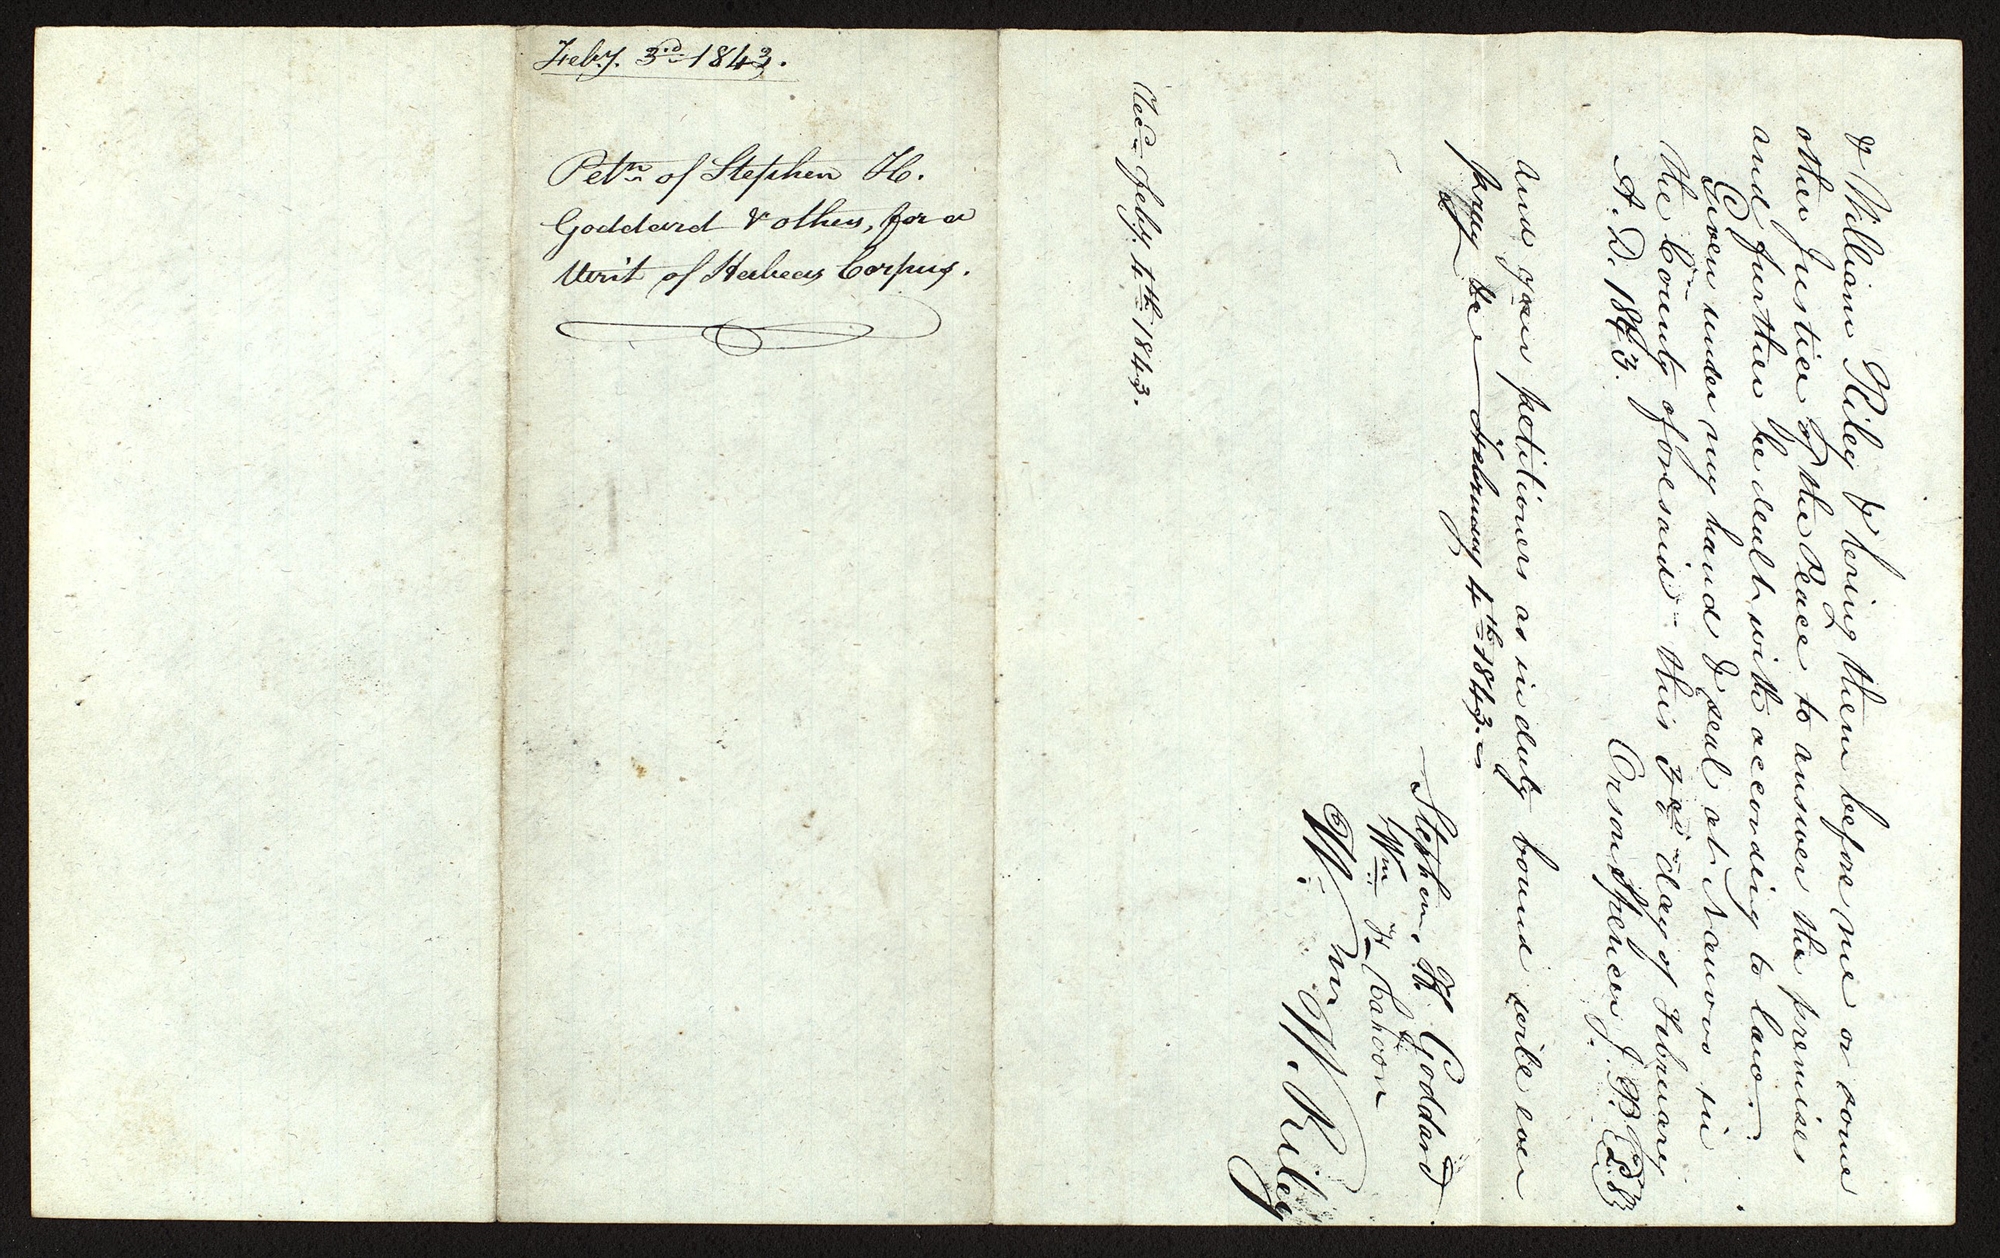 & William Riley & bring them before me or some
other Justice of the Peace to answer the premises
and further be dealt with according to law.
Given under my hand & seal at Nauvoo in
the County aforesaid this 3d day of February
A. D. 1843.
Orson Spencer J. P. L.S.
And your petitioners as in duty bound will ever
pray &c February 4th 1843.
Stephen H. Goddard
Wm F Cahoon
Wm W. Riley
Feby. 4th 1843.
Feby. 3rd 1843.
Petn of Stephen H.
Goddard & others, for a
Writ of Habeas Corpus.